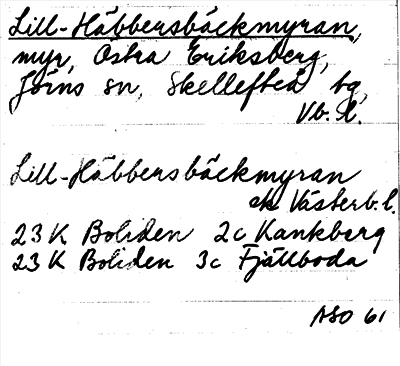 Lill-Häbbersbäckmyran,
myr, Östra Eriksberg,
Jörns sn, Skellefteå tg,
Vb. l.
Lill-Häbbersbäckmyran
ek Västerb. l.
23K Boliden 2c Kankberg
23K Boliden 3c Fjällboda
ASO 61